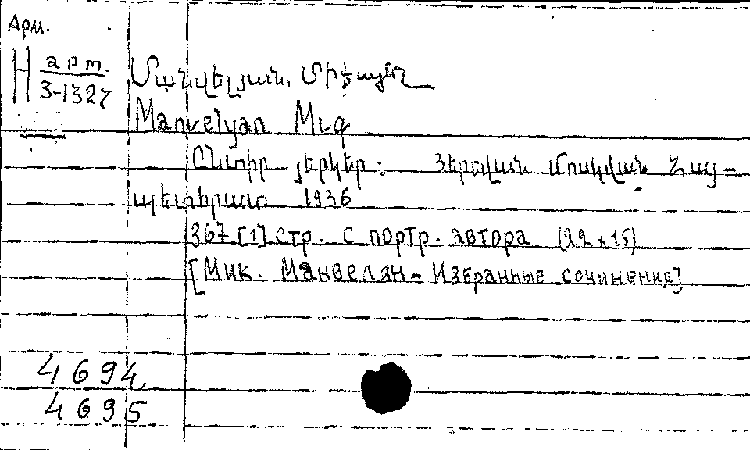 Арм.
Н арт.
3-1327
Մանվելյան, Միքայել
Manvelyan Miq
Ընտիր յերկեր: Յերևան Մոսկվան Հայ-
պետհրատ 1936
367 [1] стр. с портр. автора (22 х 15)
[Мик. Манвелян - Избранные сочинения]
4694
4695